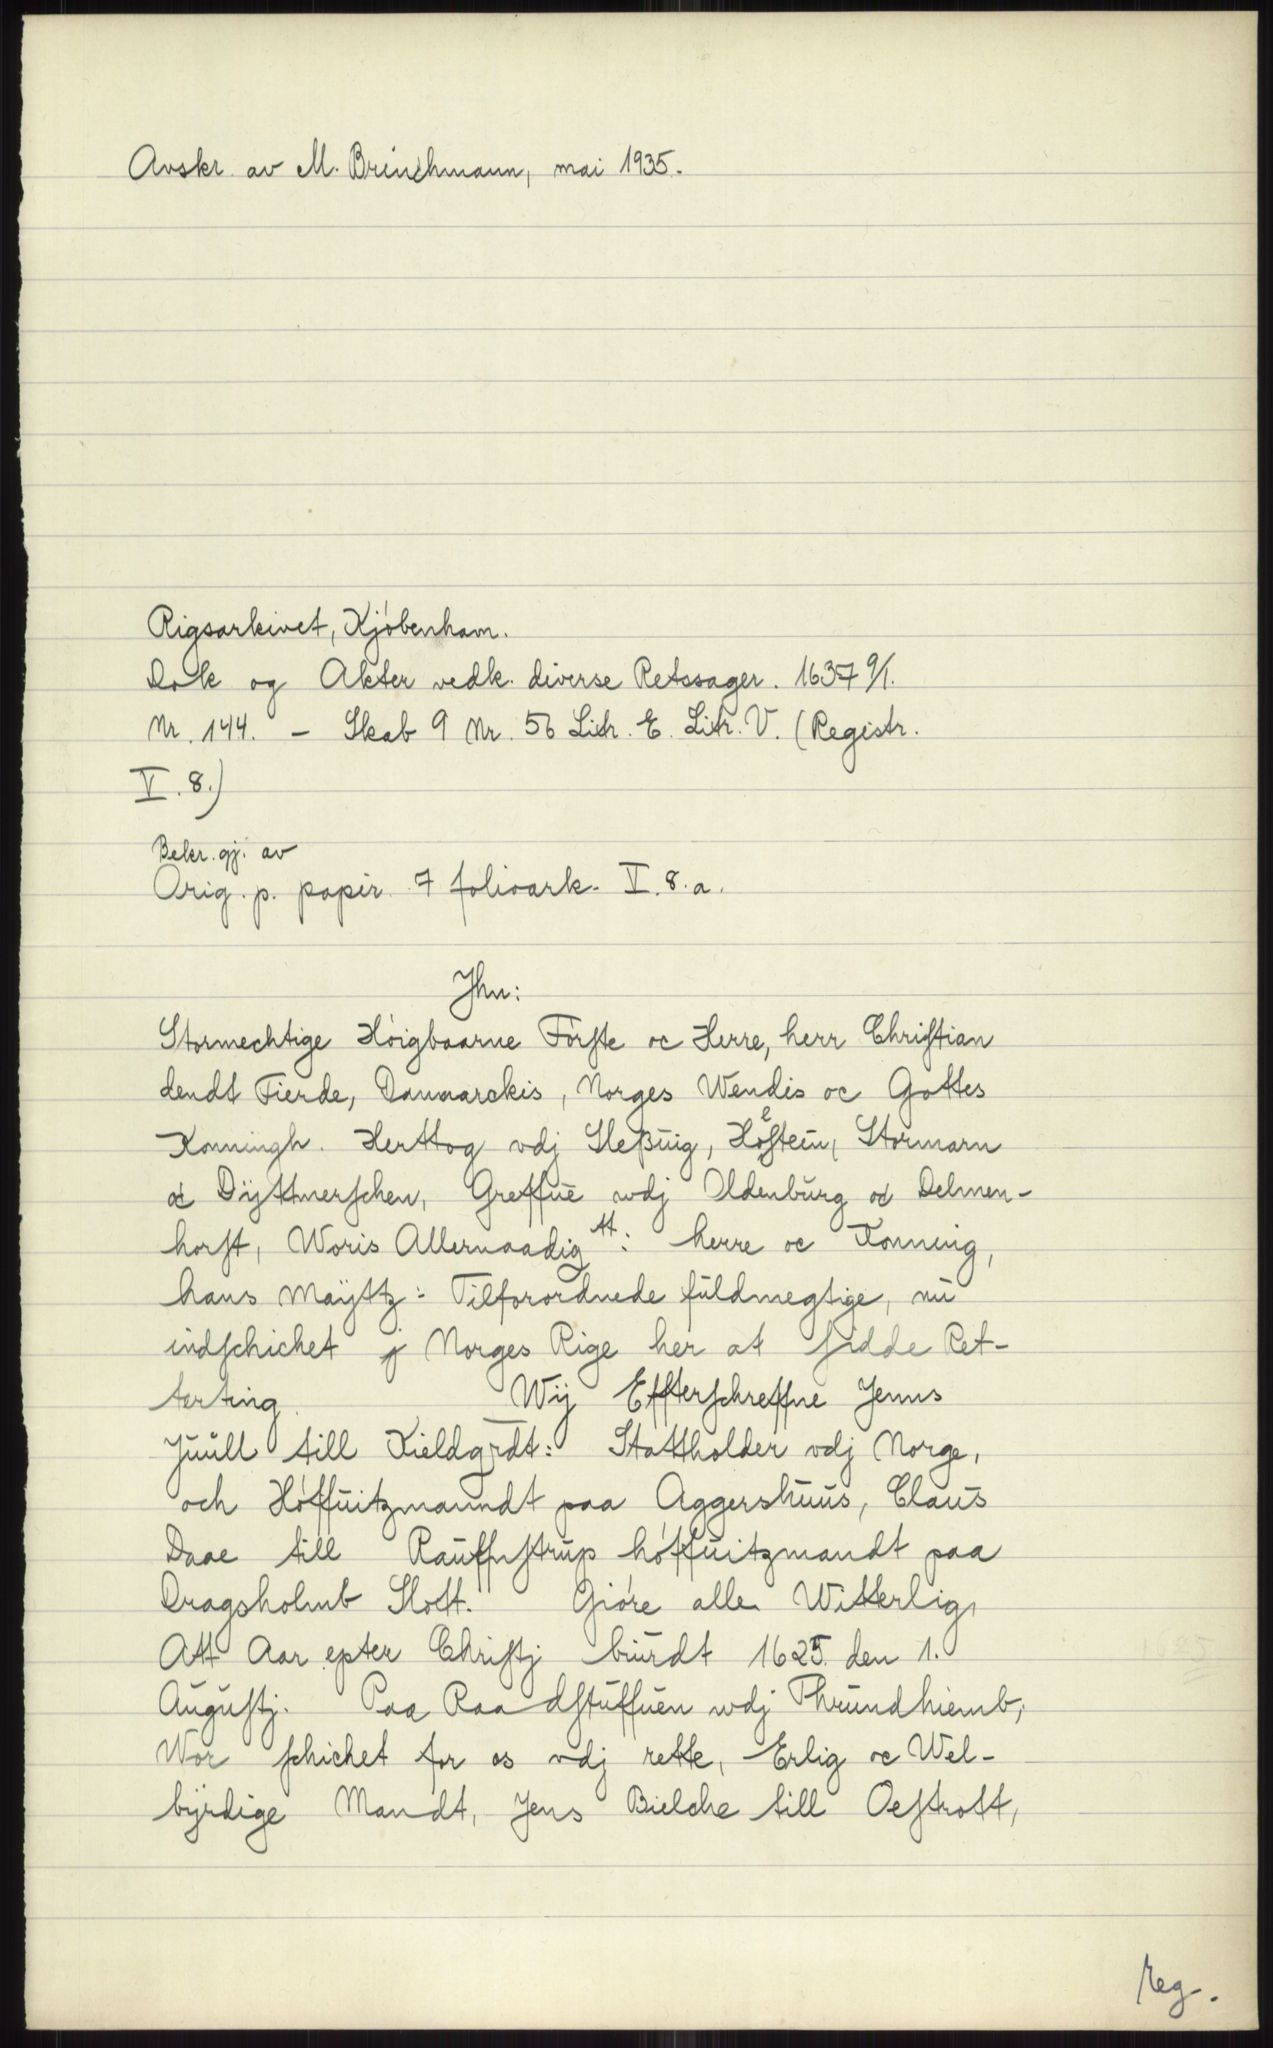 Avskr. av M. Brinchmann, mai 1935.
Rigsarkivet, Kjøbenhavn.
Dok og Akter vedk. diverse Retssager. 1637 9/1.
Nr. 144. – Skab 9 Nr. 56 Litr. E. Litr. V. (Registr.
V. 8.)
Bekr. gj. av
Orig. p. papir 7 folioark. V. 8. a.
Jhu:
Stormechtige Høigbaarne Førſte oc Herre, herr Chriſtian
dendt Fierde, Danmarckis, Norges Wendis oc Gottes
Konningh. Herttog vdj Sleßuig, Holſtein, Stormarn
oc Dÿttmerſchen, Greffue wdj Oldenburg oc Delmen-
horſt, Woris Allernaadigtt: herre oc Konning,
hans Maÿttz: Tilforordnede fuldmegtige, nu
indſchichet j Norges Rige her at ſidde Ret-
terting. Wÿ Effterſchreffne Jenns
Juull till Kieldgrdt: Stattholder vdj Norge,
och Høffuitzmanndt paa Aggershuus, Claus
Daae till Rauffnſtrup høffuitzmandt paa
Dragsholmb Slott. Giøre alle Witterlig,
Att Aar epter Chriſtj buurdt 1625. den 1.
Auguſtj. Paa Raadſtuffuen wdj Thrundhiemb,
Wor ſchichet for os vdj rette, Erlig oc Wel-
bÿrdige Mandt, Jens Bielche till Oeſtrott,
625
reg.